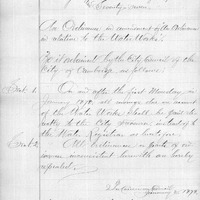 Twenty nine.
An Ordinance in amendment of the Ordinance
in relation to the Water Works.
Be it ordained by the City Council of the
City of Cambridge, as follows:
Sect. 1. On and after the first Monday in
January 1878, all money due on account
of the Water Works shall be paid di-
rectly to the City Treasurer instead of to
the Water Registrar as heretofore.
Sect. 2. All ordinances or parts of ord-
inances inconsistent herewith are hereby
repealed.
In Common Council
January 2, 1878.